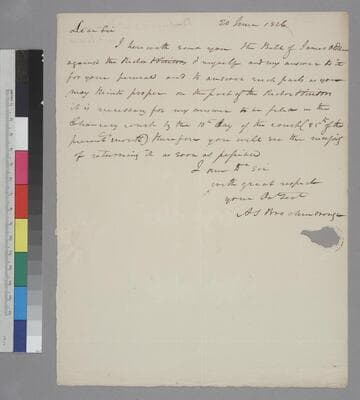 20 June 1826
Dear Sir
I herewith send you the Bill of James
against the Rector & Visitors & myself and my answer to it
for your perusal and to answer such parts as you
may think proper on the part of the Rector & Visitors
it is necessary for my answer to be filed in the
Chancery court by the 10th day of the court (25th of the
present month) therefore you will see the necessity
of returning it as soon as possible
I am Dr Sir
with great respect
your Ob Servt
A S Brockenbrough